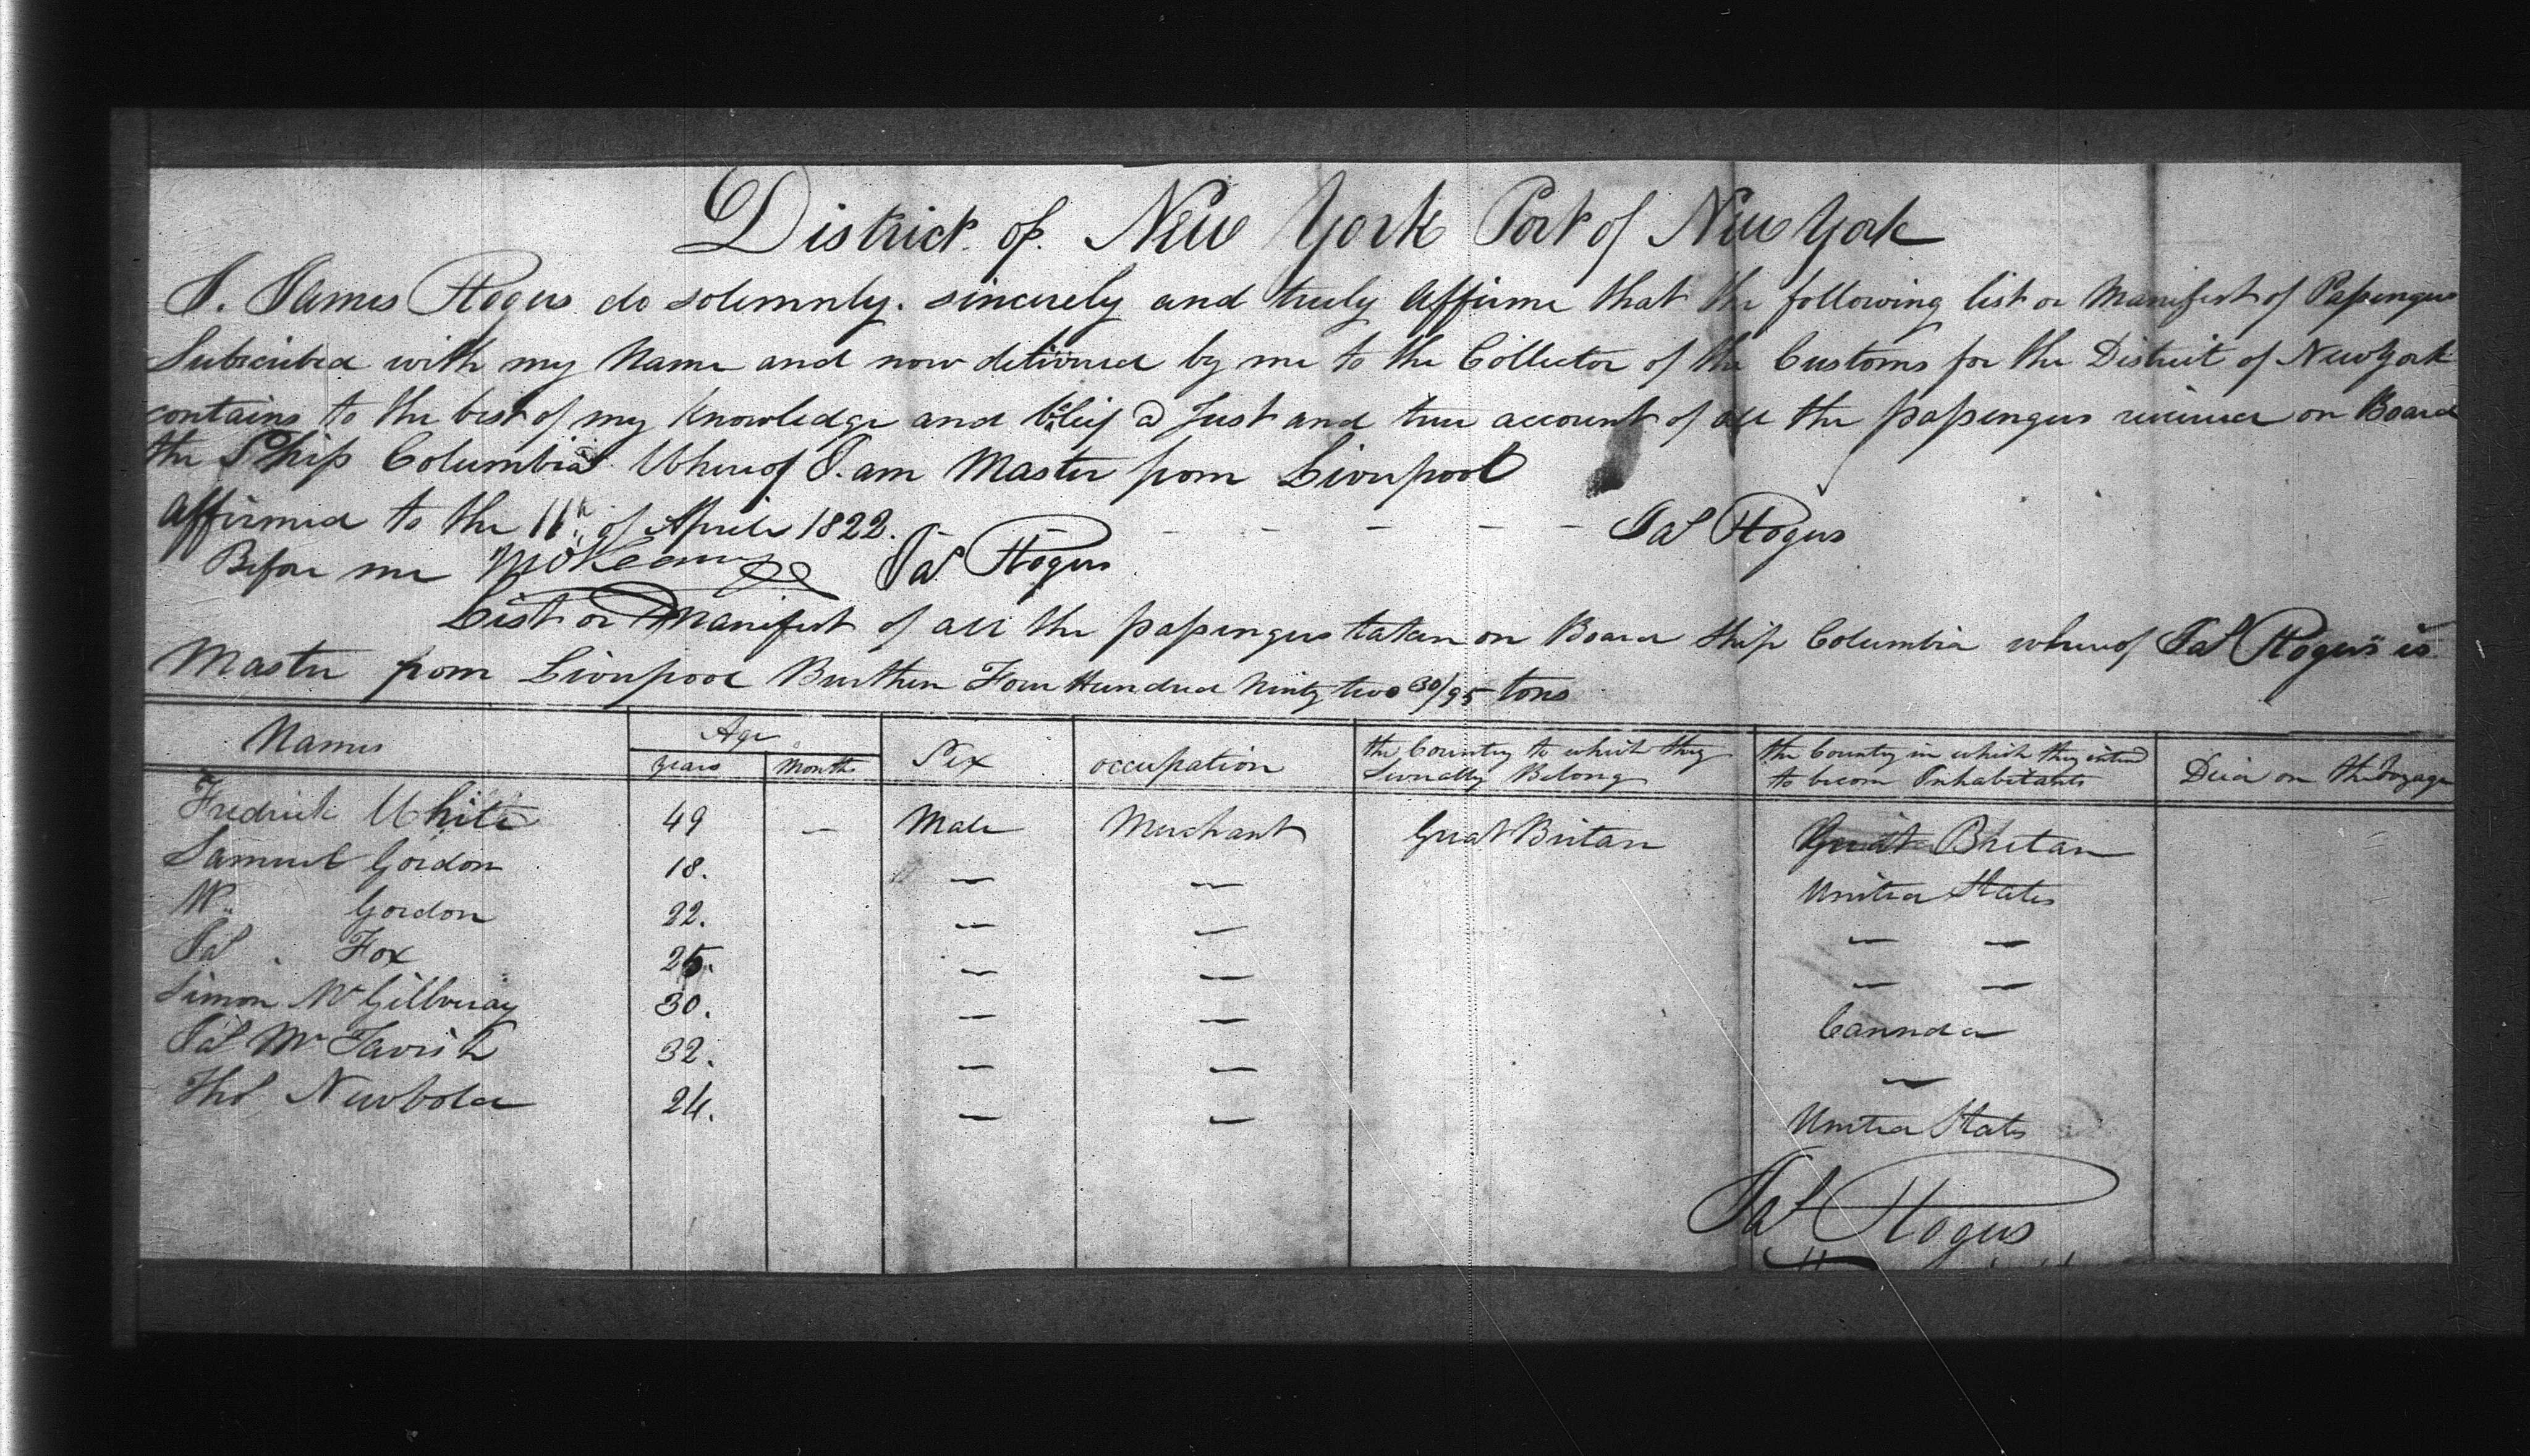 District of New York Port of New York
I. James Rogers do solemnly. sincerely and truly affirm that the following list or Manifest of Passengers
Subscribed with my Name and now delivered by me to the Collector of the Customs for the District of New York
contains to the best of my Knowledge and belief a Just and true account of all the passengers received on Board
the Ship Columbia Whereof I. am Master from Liverpool
Affirmed to the 11th of April 1822. Jas Rogers
Before me Jas Rogers
List or Manifest of all the passengers taken on Board Ship Columbia whereof Jas Rogers is
Master from Liverpool Burthen Four Hundred Ninty two 30/95 tons
Names Age years Months Sex occupation the Country to which they Severally Belong the Country in which they intend to become Inhabitants Died on the Voyage
Fredrick White 49 — Male Merchant Great Britan Great Britan
Samuel Gordon 18. — — United States
Wm Gordon 22. — — — —
Jas. Fox 25. — — — —
Simon McGillveray 30. — — Cannda
Jas McTavish 32. — — —
Thos Newbold 24. — — United States
Jas Rogers